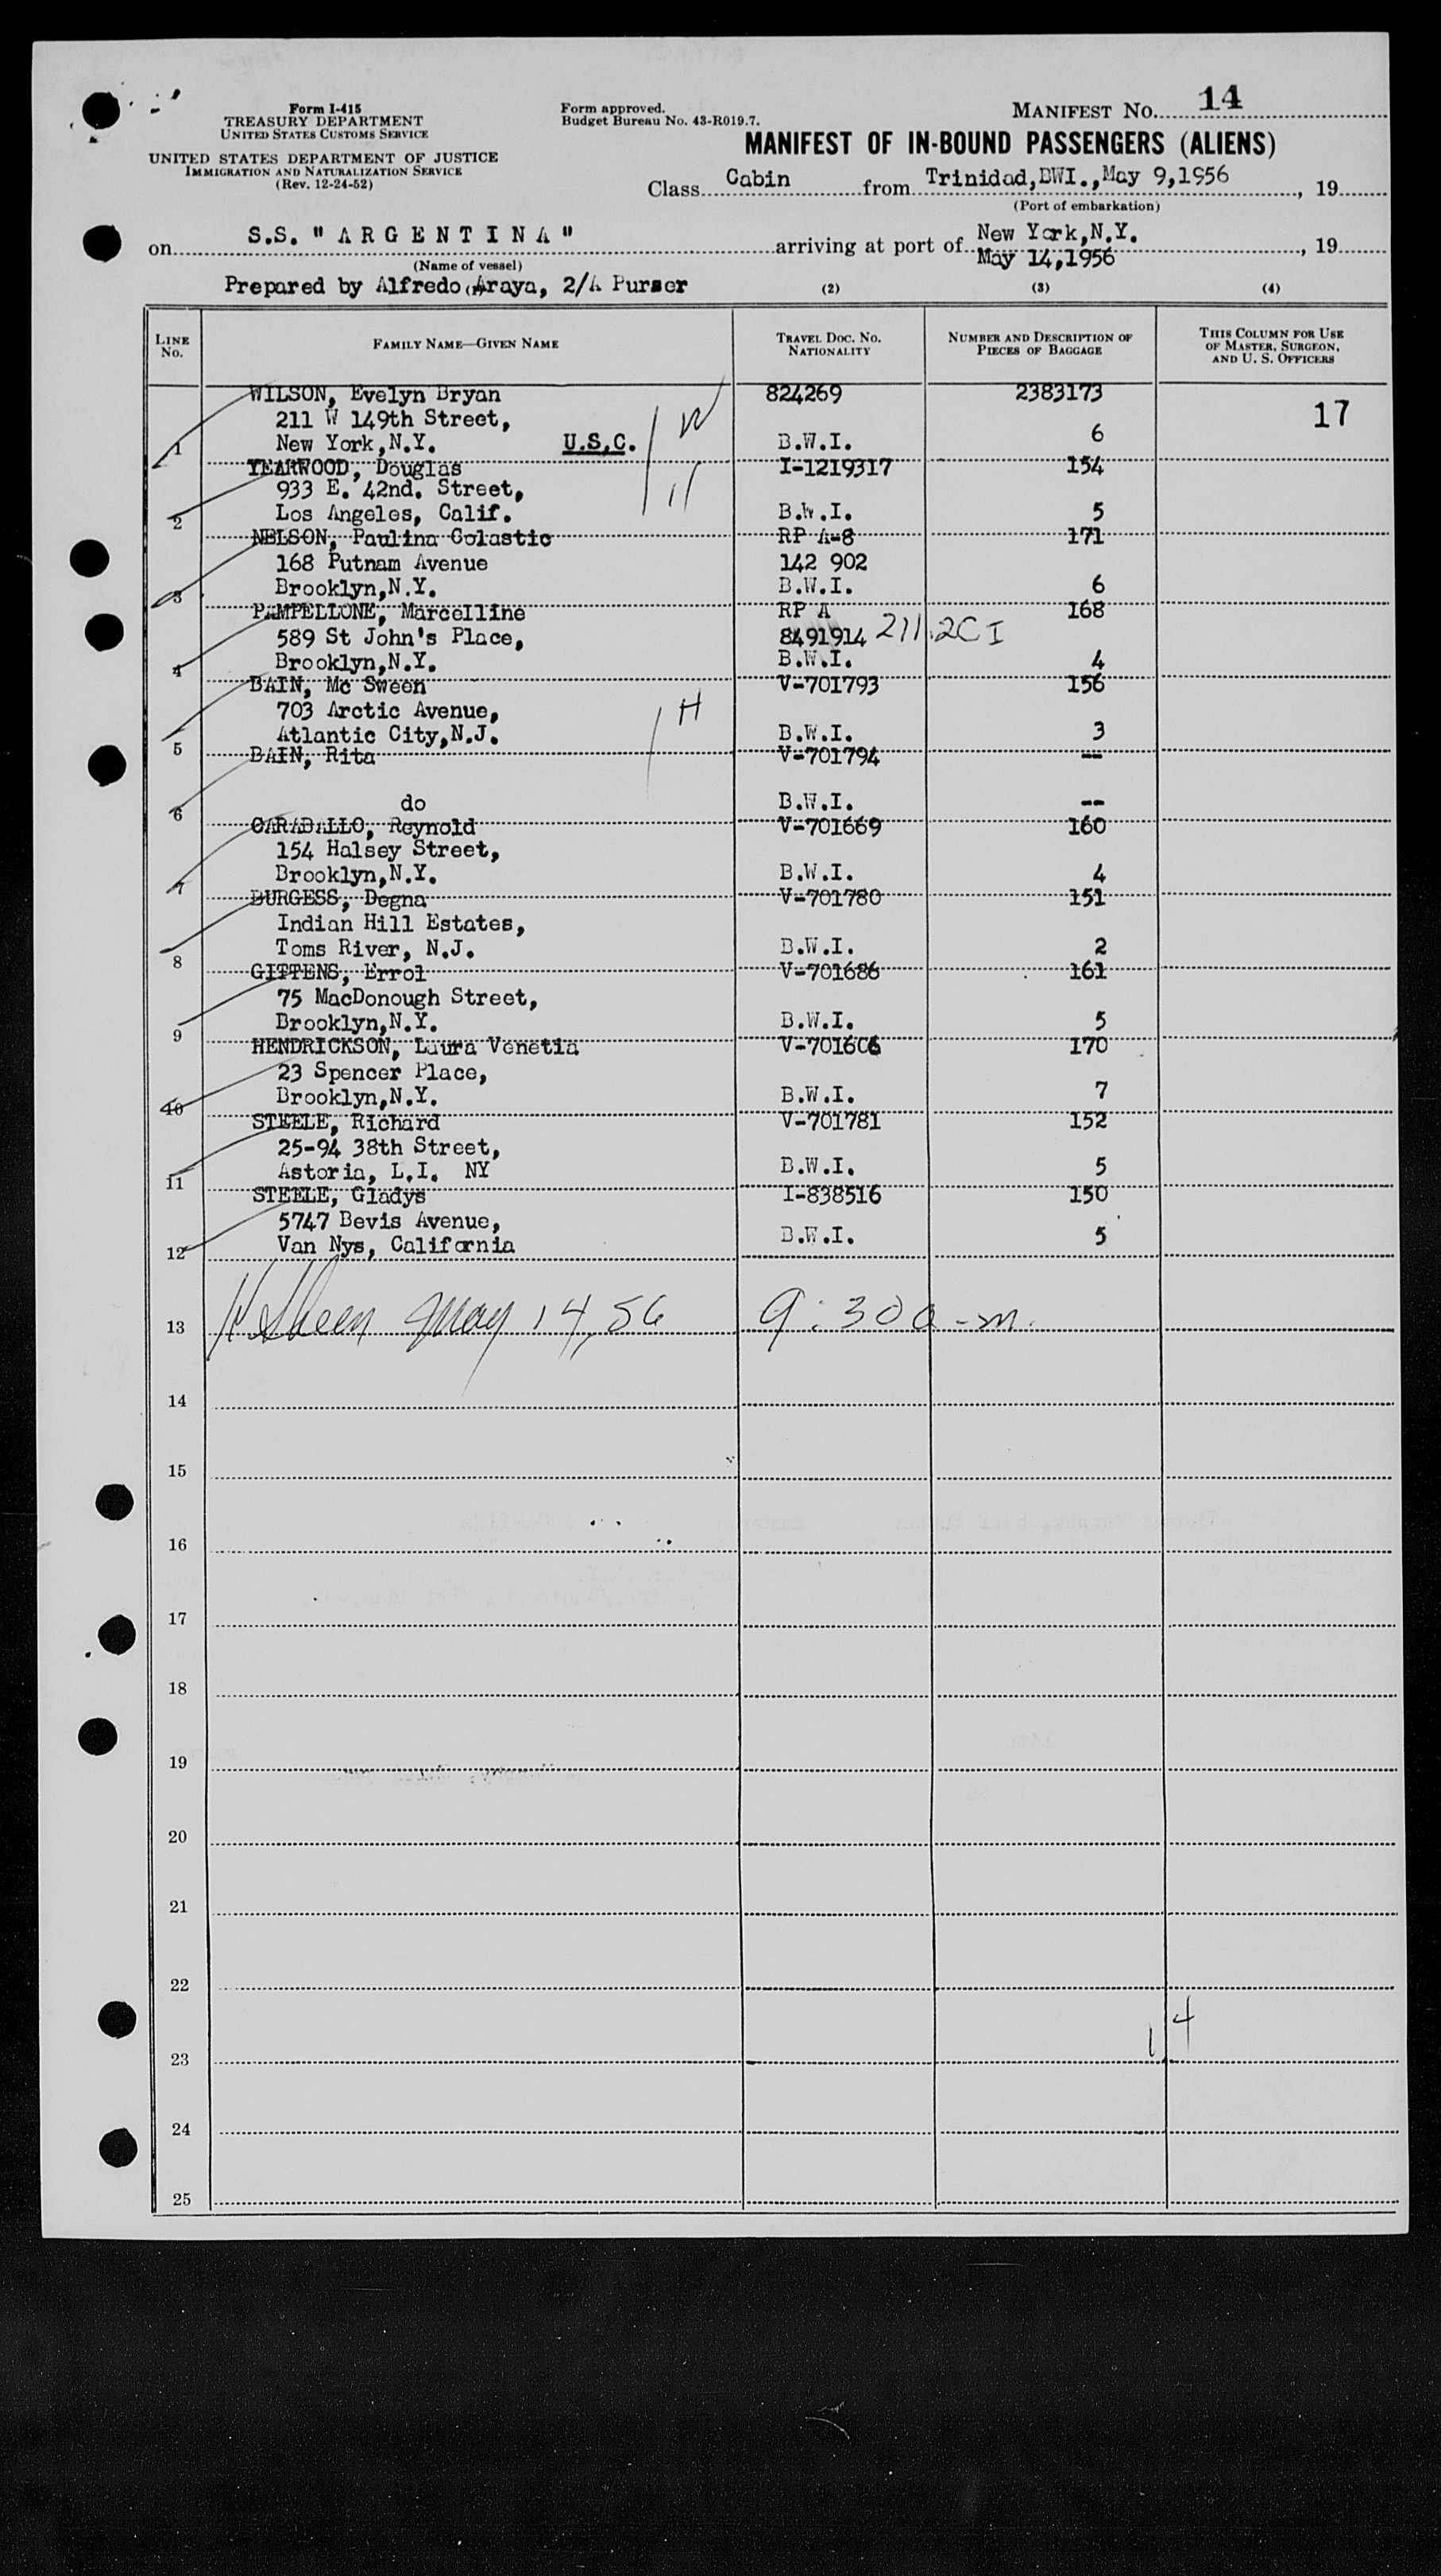 Form I-415
TREASURY DEPARTMENT
UNITED STATES CUSTOMS SERVICE
UNITED STATES DEPARTMENT OF JUSTICE
IMMIGRATION AND NATURALIZATION SERVICE
(Rev. 12-24-52)
Form approved.
Budget Bureau No. 43-R019.7.
MANIFEST NO. 14
MANIFEST OF IN-BOUND PASSENGERS (ALIENS)
Class Cabin from Trinidad,BWI.,May 9,1956, 19
(Port of embarkation)
on S.S. "ARGENTINA" arriving at port of New York,N.Y. May 14,1956, 19
(Name of vessel)
Prepared by Alfredo Araya, 2/A Purser
(2) (3) (4)
LINE NO. FAMILY NAME—GIVEN NAME TRAVEL DOC. NO. NATIONALITY NUMBER AND DESCRIPTION OF PIECES OF BAGGAGE THIS COLUMN FOR USE OF MASTER, SURGEON, AND U. S. OFFICERS
WILSON, Evelyn Bryan 824269 2383173
211 W 149th Street, W 17
1 New York,N.Y. U.S.C. B.W.I. 6
YEARWOOD, Douglas I-1219317 154
933 E. 42nd. Street,
2 Los Angeles, Calif. B.W.I. 5
NELSON, Paulina Colastic RP A-8 171
168 Putnam Avenue 142 902
3 Brooklyn,N.Y. B.W.I. 6
PAMPELLONE, Marcelline RP A 168
589 St John's Place, 8491914 211.2CI
4 Brooklyn,N.Y. B.W.I. 4
BAIN, Mc Sween V-701793 156
703 Arctic Avenue, H
5 Atlantic City,N.J. B.W.I. 3
BAIN, Rita V-701794 --
6 do B.W.I. --
CARABALLO, Reynold V-701669 160
154 Halsey Street,
7 Brooklyn,N.Y. B.W.I. 4
BURGESS, Degna V-701780 151
Indian Hill Estates,
8 Toms River, N.J. B.W.I. 2
GITTENS, Errol V-701686 161
75 MacDonough Street,
9 Brooklyn,N.Y. B.W.I. 5
HENDRICKSON, Laura Venetia V-701606 170
23 Spencer Place,
10 Brooklyn,N.Y. B.W.I. 7
STEELE, Richard V-701781 152
25-94 38th Street,
11 Astoria, L.I. NY B.W.I. 5
STEELE, Gladys I-838516 150
5747 Bevis Avenue,
12 Van Nys, California B.W.I. 5
13 May 14, 56 9:30 a-m.
14
15
16
17
18
19
20
21
22
14
23
24
25